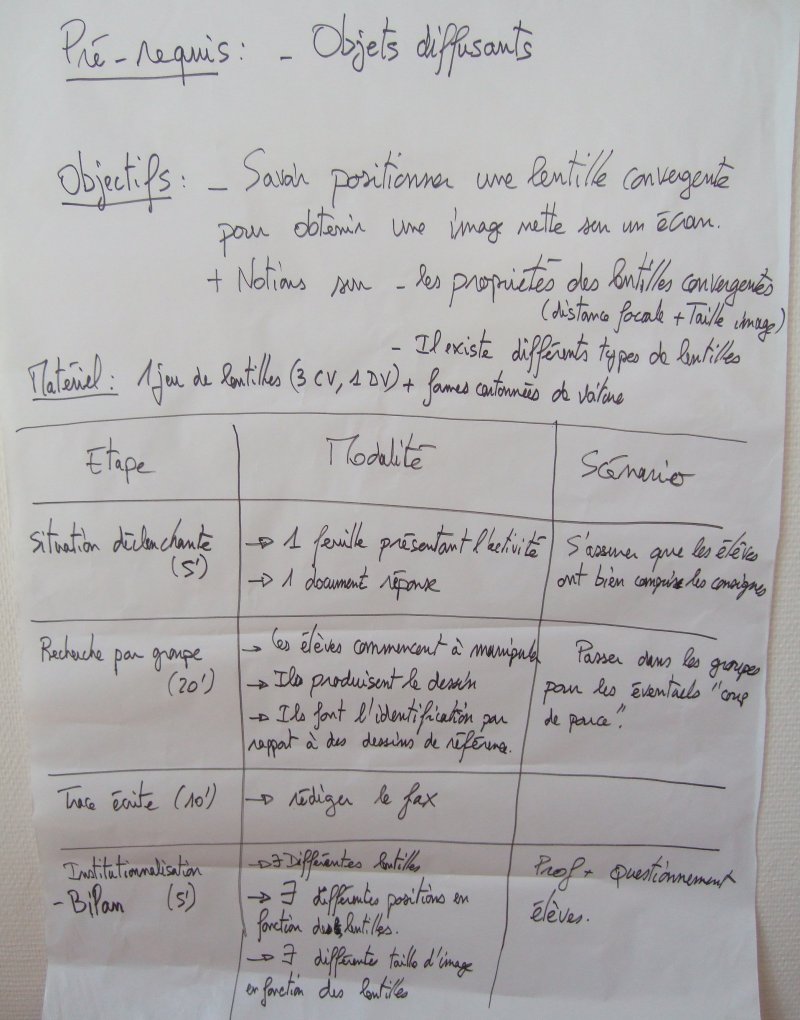 Pré-requis: - Objets diffusants
Objectifs: - Savoir positionner une lentille convergente
pour obtenir une image nette sur un écran.
+ Notions sur - les propriétés des lentilles convergentes
(distance focale + Taille image)
- Il existe différents types de lentilles
Matériel: 1 jeu de lentilles (3 CV, 1 DV) + formes cartonnées de voiture
Etape
Modalité
Scénario
Situation déclenchante
(5')
→ 1 feuille présentant l'activité
→ 1 document réponse
S'assurer que les élèves
ont bien compris les consignes
Recherche par groupe
(20')
→ Les élèves commencent à manipuler
→ Ils produisent le dessin
→ Ils font l'identification par
rapport à des dessins de référence.
Passer dans les groupes
pour les éventuels "coup
de pouce".
Trace écrite (10')
→ rédiger le fax
Institutionnalisation
- Bilan (5')
→ ∃ Différentes lentilles
→ ∃ différentes positions en
fonction des lentilles.
→ ∃ différente taille d'image
en fonction des lentilles
Prof + questionnement
élèves.